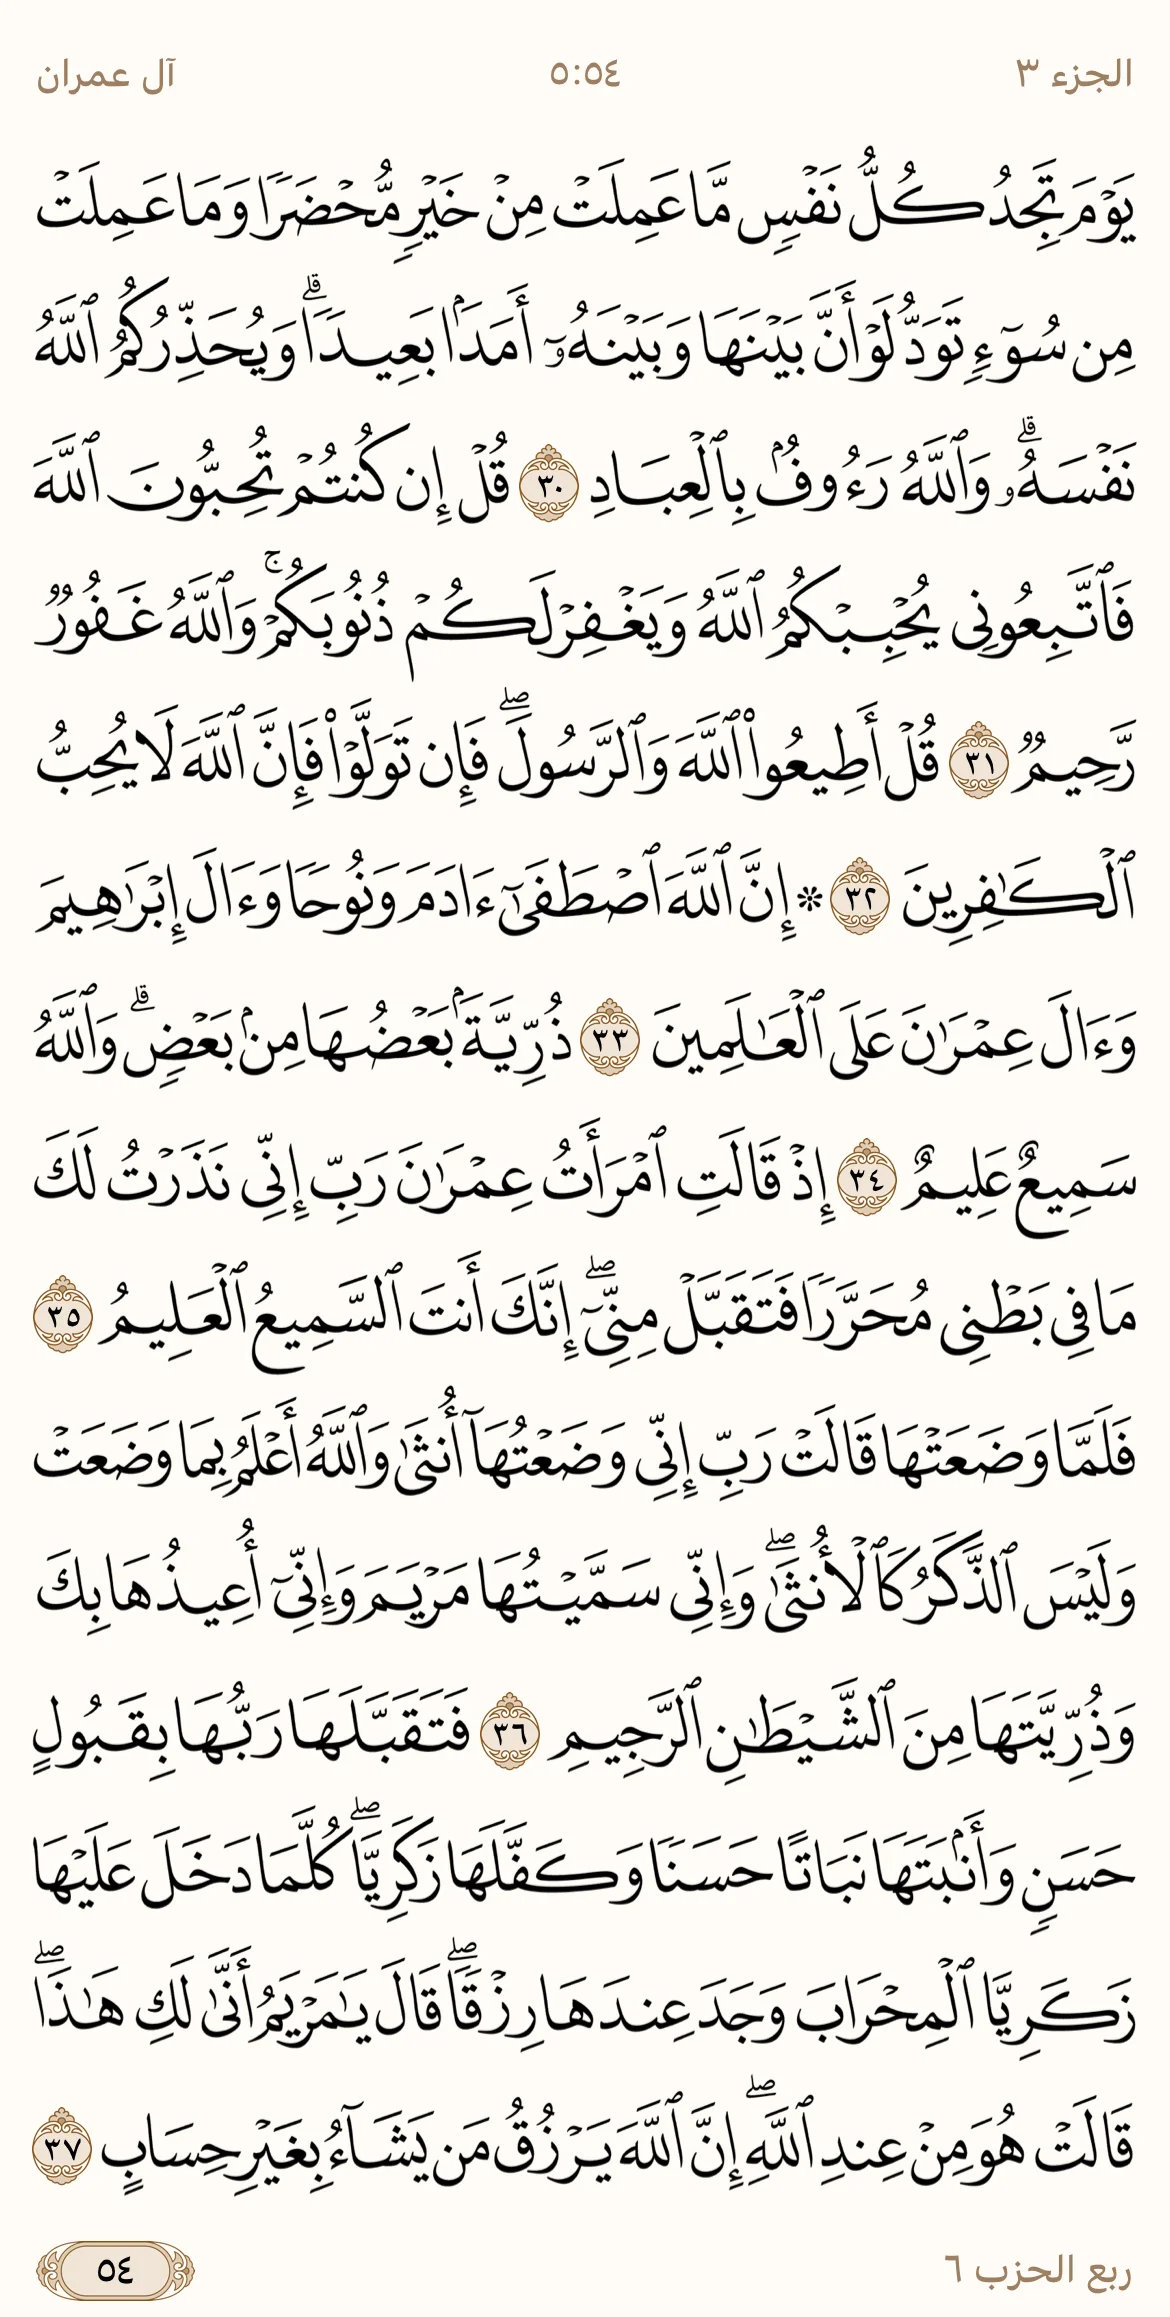 الجزء ٣
٥:٥٤
آل عمران
يَوْمَ تَجِدُ كُلُّ نَفْسٍ مَّا عَمِلَتْ مِنْ خَيْرٍ مُّحْضَرًا وَمَا عَمِلَتْ
مِن سُوٓءٍ تَوَدُّ لَوْ أَنَّ بَيْنَهَا وَبَيْنَهُۥٓ أَمَدَۢا بَعِيدًاۗ وَيُحَذِّرُكُمُ ٱللَّهُ
نَفْسَهُۥۗ وَٱللَّهُ رَءُوفُۢ بِٱلْعِبَادِ ٣٠ قُلْ إِن كُنتُمْ تُحِبُّونَ ٱللَّهَ
فَٱتَّبِعُونِى يُحْبِبْكُمُ ٱللَّهُ وَيَغْفِرْ لَكُمْ ذُنُوبَكُمْۚ وَٱللَّهُ غَفُورٌ
رَّحِيمٌ ٣١ قُلْ أَطِيعُوا۟ ٱللَّهَ وَٱلرَّسُولَۖ فَإِن تَوَلَّوْا۟ فَإِنَّ ٱللَّهَ لَا يُحِبُّ
ٱلْكَـٰفِرِينَ ٣٢ ۞ إِنَّ ٱللَّهَ ٱصْطَفَىٰٓ ءَادَمَ وَنُوحًا وَءَالَ إِبْرَٰهِيمَ
وَءَالَ عِمْرَٰنَ عَلَى ٱلْعَـٰلَمِينَ ٣٣ ذُرِّيَّةَۢ بَعْضُهَا مِنۢ بَعْضٍۗ وَٱللَّهُ
سَمِيعٌ عَلِيمٌ ٣٤ إِذْ قَالَتِ ٱمْرَأَتُ عِمْرَٰنَ رَبِّ إِنِّى نَذَرْتُ لَكَ
مَا فِى بَطْنِى مُحَرَّرًا فَتَقَبَّلْ مِنِّىٓۖ إِنَّكَ أَنتَ ٱلسَّمِيعُ ٱلْعَلِيمُ ٣٥
فَلَمَّا وَضَعَتْهَا قَالَتْ رَبِّ إِنِّى وَضَعْتُهَآ أُنثَىٰ وَٱللَّهُ أَعْلَمُ بِمَا وَضَعَتْ
وَلَيْسَ ٱلذَّكَرُ كَٱلْأُنثَىٰۖ وَإِنِّى سَمَّيْتُهَا مَرْيَمَ وَإِنِّىٓ أُعِيذُهَا بِكَ
وَذُرِّيَّتَهَا مِنَ ٱلشَّيْطَـٰنِ ٱلرَّجِيمِ ٣٦ فَتَقَبَّلَهَا رَبُّهَا بِقَبُولٍ
حَسَنٍ وَأَنۢبَتَهَا نَبَاتًا حَسَنًا وَكَفَّلَهَا زَكَرِيَّاۖ كُلَّمَا دَخَلَ عَلَيْهَا
زَكَرِيَّا ٱلْمِحْرَابَ وَجَدَ عِندَهَا رِزْقًاۖ قَالَ يَـٰمَرْيَمُ أَنَّىٰ لَكِ هَـٰذَاۖ
قَالَتْ هُوَ مِنْ عِندِ ٱللَّهِۖ إِنَّ ٱللَّهَ يَرْزُقُ مَن يَشَآءُ بِغَيْرِ حِسَابٍ ٣٧
ربع الحزب ٦
٥٤